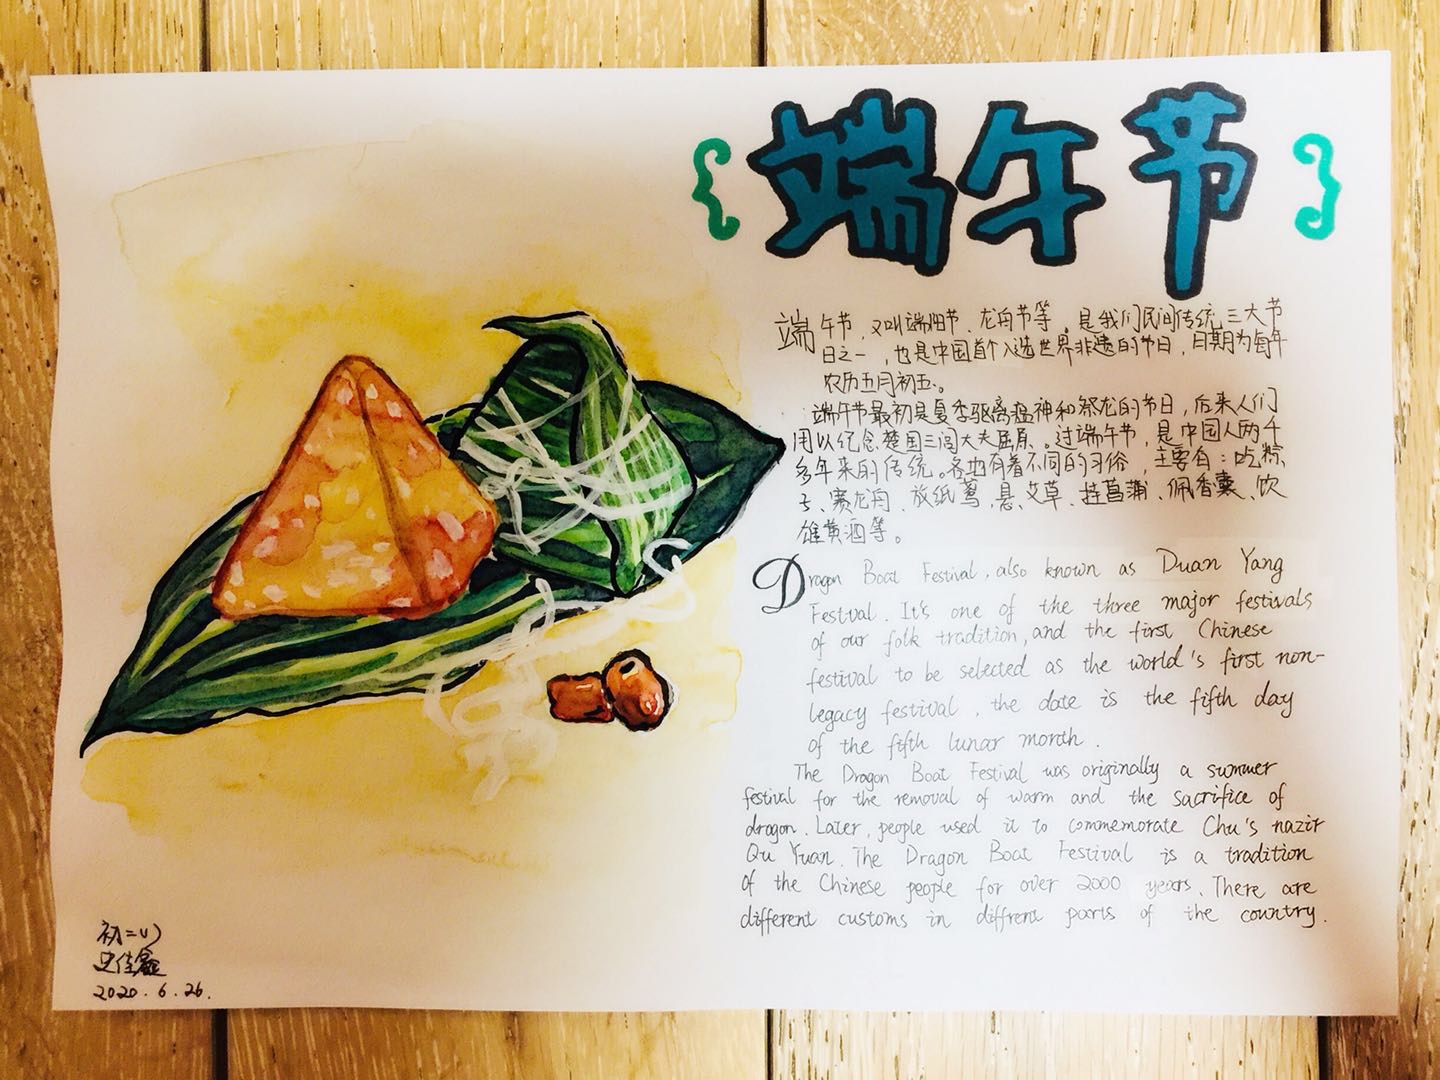 端午节
端午节，又叫端阳节、龙舟节等，是我们民间传统三大节
日之一，也是中国首个入选世界非遗的节日，日期为每年
农历五月初五。
端午节最初是夏季驱离瘟神和祭龙的节日，后来人们
用以纪念楚国三闾大夫屈原。过端午节，是中国人两千
多年来的传统。各地有着不同的习俗，主要有：吃粽
子、赛龙舟、放纸鸢、悬艾草、挂菖蒲、佩香囊、饮
雄黄酒等。
Dragon Boat Festival, also known as Duan Yang
Festval. It's one of the three major festivals
of our folk tradition, and the first Chinese
festival to be selected as the world's first non-
legacy festival, the date is the fifth day
of the fifth lunar month.
The Dragon Boat Festival was originally a summer
festival for the removal of warm and the sacrifice of
dragon. Later, people used it to commemorate Chu's nazir
Qu Yuan. The Dragon Boat Festival is a tradition
of the Chinese people for over 2000 years. There are
different customs in diffrent parts of the country.
初二(1)
史佳鑫
2020.6.26.